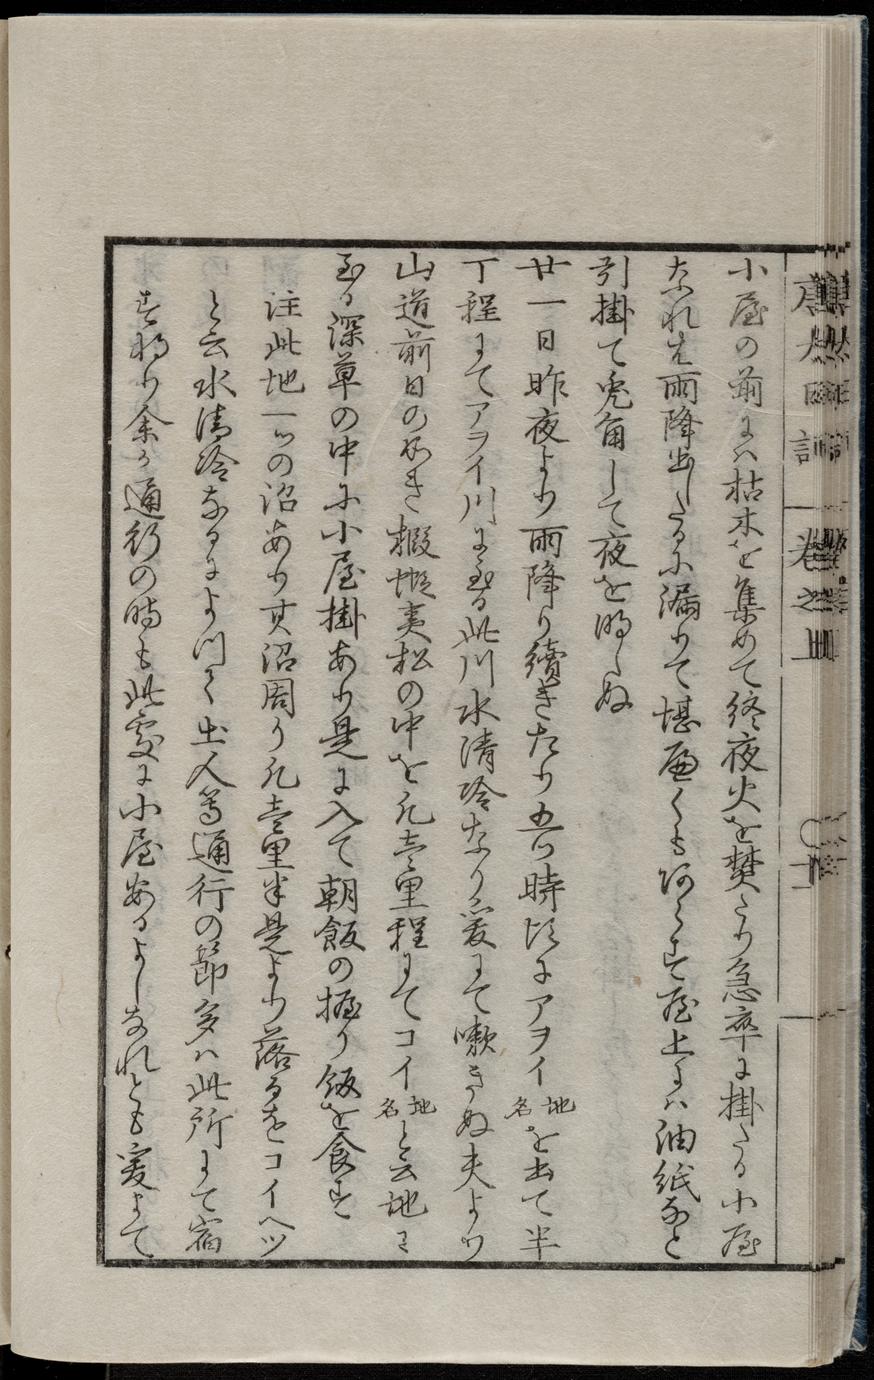 小屋の前には枯木を集めて終夜火を焚たり急卒に掛たる小屋
なれは雨降出したるに漏りて堪へくもあらす屋上には油紙なと
引掛て兎角して夜を明しぬ
廿一日昨夜より雨降り続きたり五ツ時頃にアヲイ地名を出て半
丁程にてアヲイ川に至る此川水清冷なり爰にて嗽きぬ夫より
山道前日の如き椴蝦夷松の中を凡壱里程にてコイ地名と云地に
至る深草の中に小屋掛あり是に入て朝飯の握り飯を食す
註此地一ツの沼あり其沼周り凡壱里半是より落るをコイヘツ
と云水清冷なるによつて土人等通行の節多は此所にて宿
す将り余か通行の時も此処に小屋あるよしなれとも爰にて
巻之五